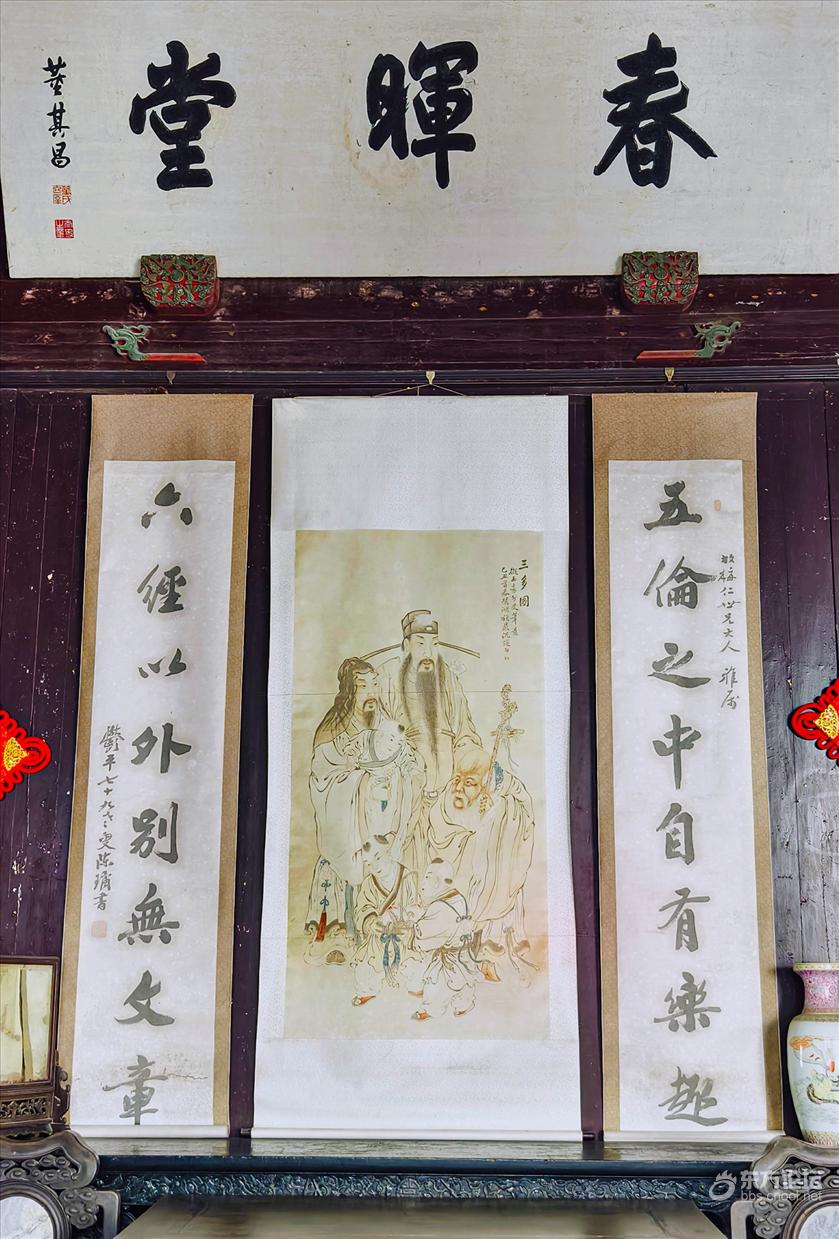 春暉堂
董其昌
五倫之中自有樂趣
仁世兄大人 雅屬
三多圖
六經以外別無文章
七十九
陳璚書
东方论坛
bbs.cnool.net